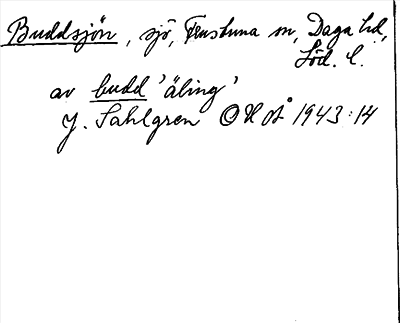 Buddsjön, sjö, Frustuna sn, Daga hd,
Söd. l.
av budd 'äling'
J. Sahlgren OHOÅ 1943:14